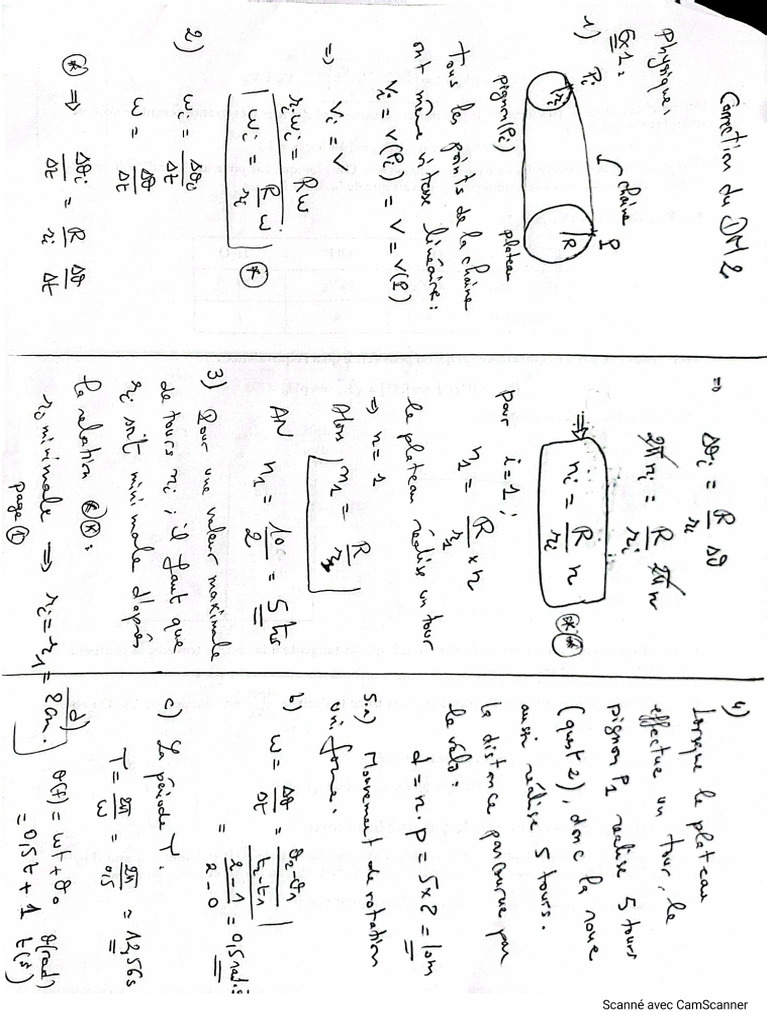 Correction du DM2
Physique:
Ex1:
1)
Pi
chaîne
P
ri
R
pignon(Pi)
plateau
Tous les points de la chaîne
ont même vitesse linéaire:
Vi = V(Pi) = V = V(P)
⇒ Vi = V
ri ωi = R ω
ωi = R/ri ω (*)
2) ωi = Δθi/Δt
ω = Δθ/Δt
(*) ⇒ Δθi/Δt = R/ri Δθ/Δt
⇒ Δθi = R/ri Δθ
2π ni = R/ri 2π n
⇒ ni = R/ri n (**)
pour i=1;
n1 = R/r1 × n
le plateau réalise un tour
⇒ n = 1
Alors n1 = R/r1
AN n1 = 10/2 = 5 trs
3) Pour une valeur maximale
de tours ni; il faut que
ri soit minimale d'après
la relation (**):
ri minimale ⇒ ri = r1 = 2cm.
page ①
4)
Lorsque le plateau
effectue un tour, le
pignon P1 réalise 5 tours
(quest 2), donc la roue
aussi réalise 5 tours.
la distance parcourue par
le vélo:
d = n . P = 5×2 = 10m
5.a) Mouvement de rotation
uniforme.
b) ω = Δθ/Δt = θ2-θ1/t2-t1
= 2-1/2-0 = 0,5 rad/s
c) La période T.
T = 2π/ω = 2π/0,5 = 12,56s
d) θ(t) = ωt + θ0
= 0,5t + 1
θ(rad)
t(s)
Scanné avec CamScanner